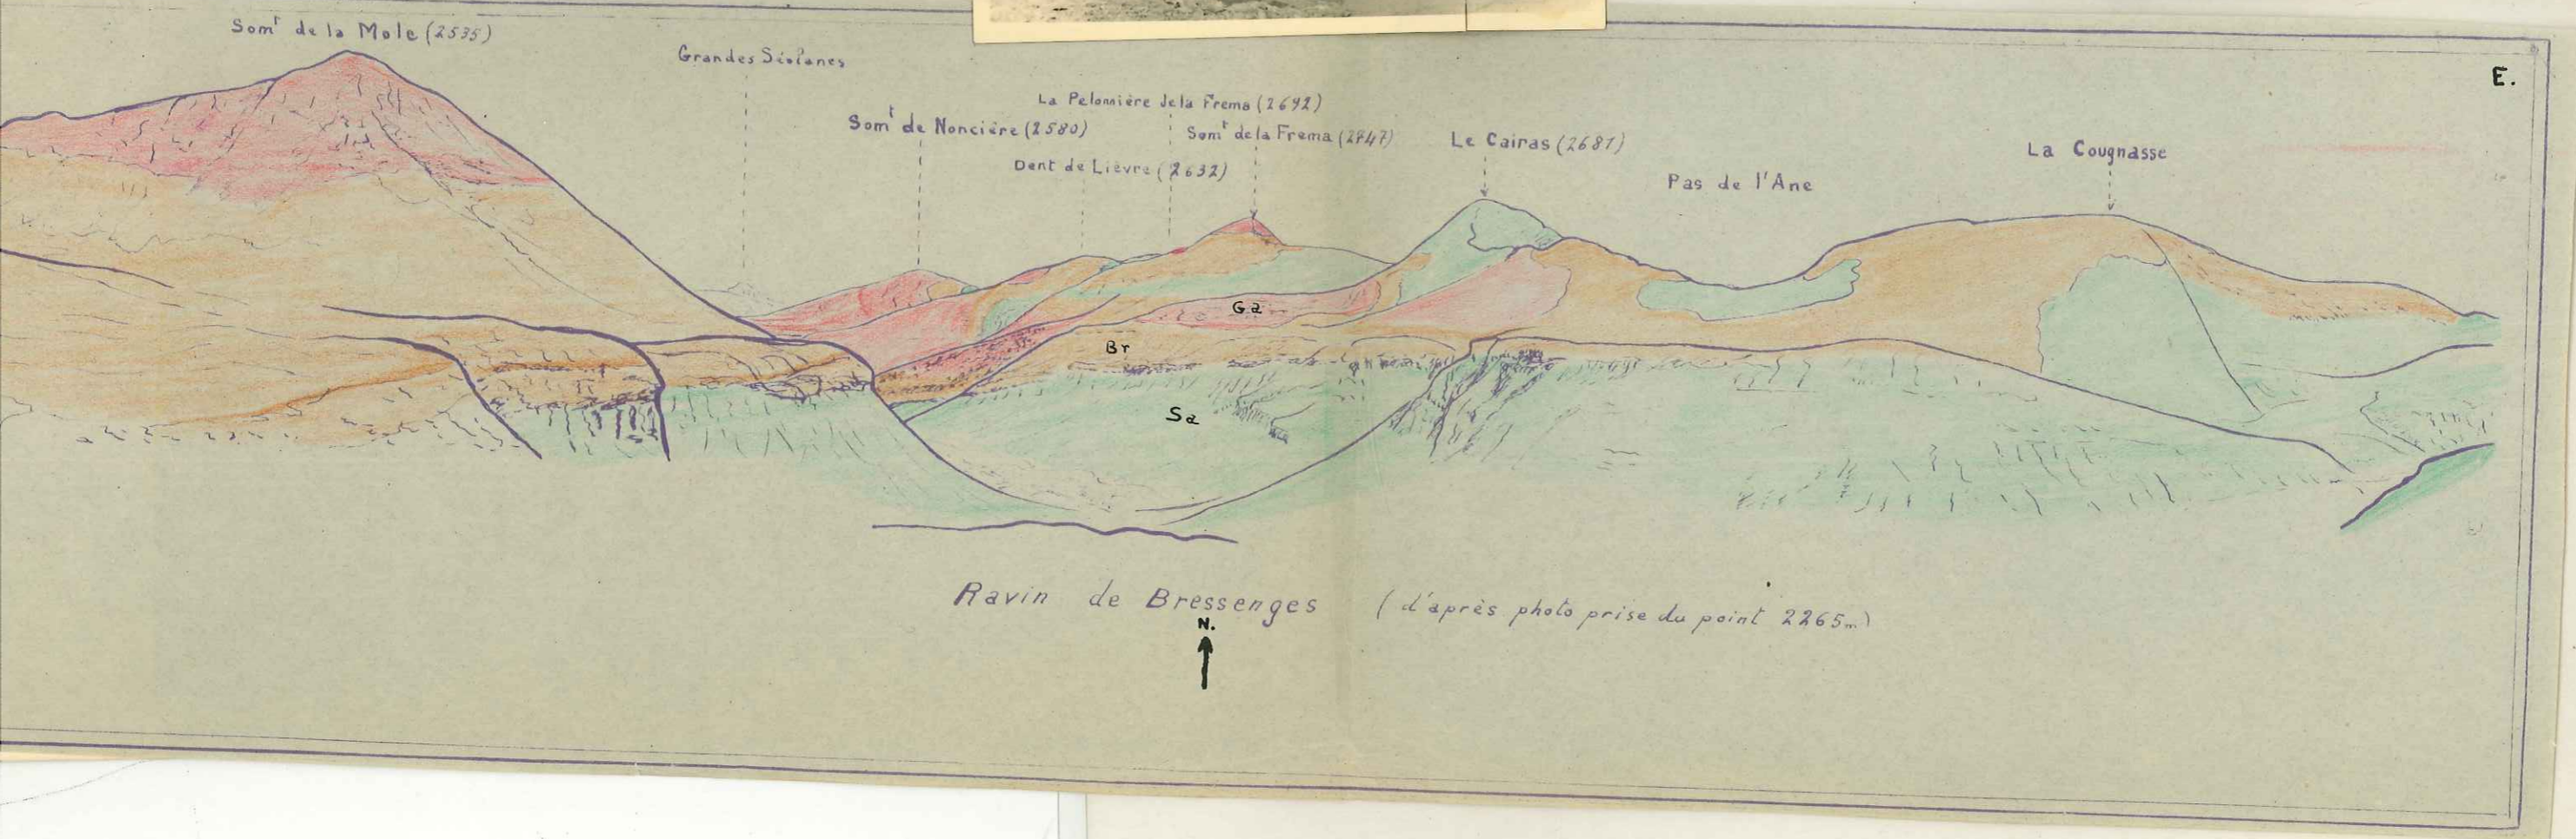 Somt de la Mole (2535)
Grandes Séolanes
La Pelonnière de la Frema (2692)
Somt de Noncière (2580)
Somt de la Frema (2747)
Dent de Lièvre (2632)
Le Cairas (2681)
Pas de l'Ane
La Cougnasse
E.
Ga
Br
Sa
Ravin de Bressenges (d'après photo prise du point 2265m)
N.